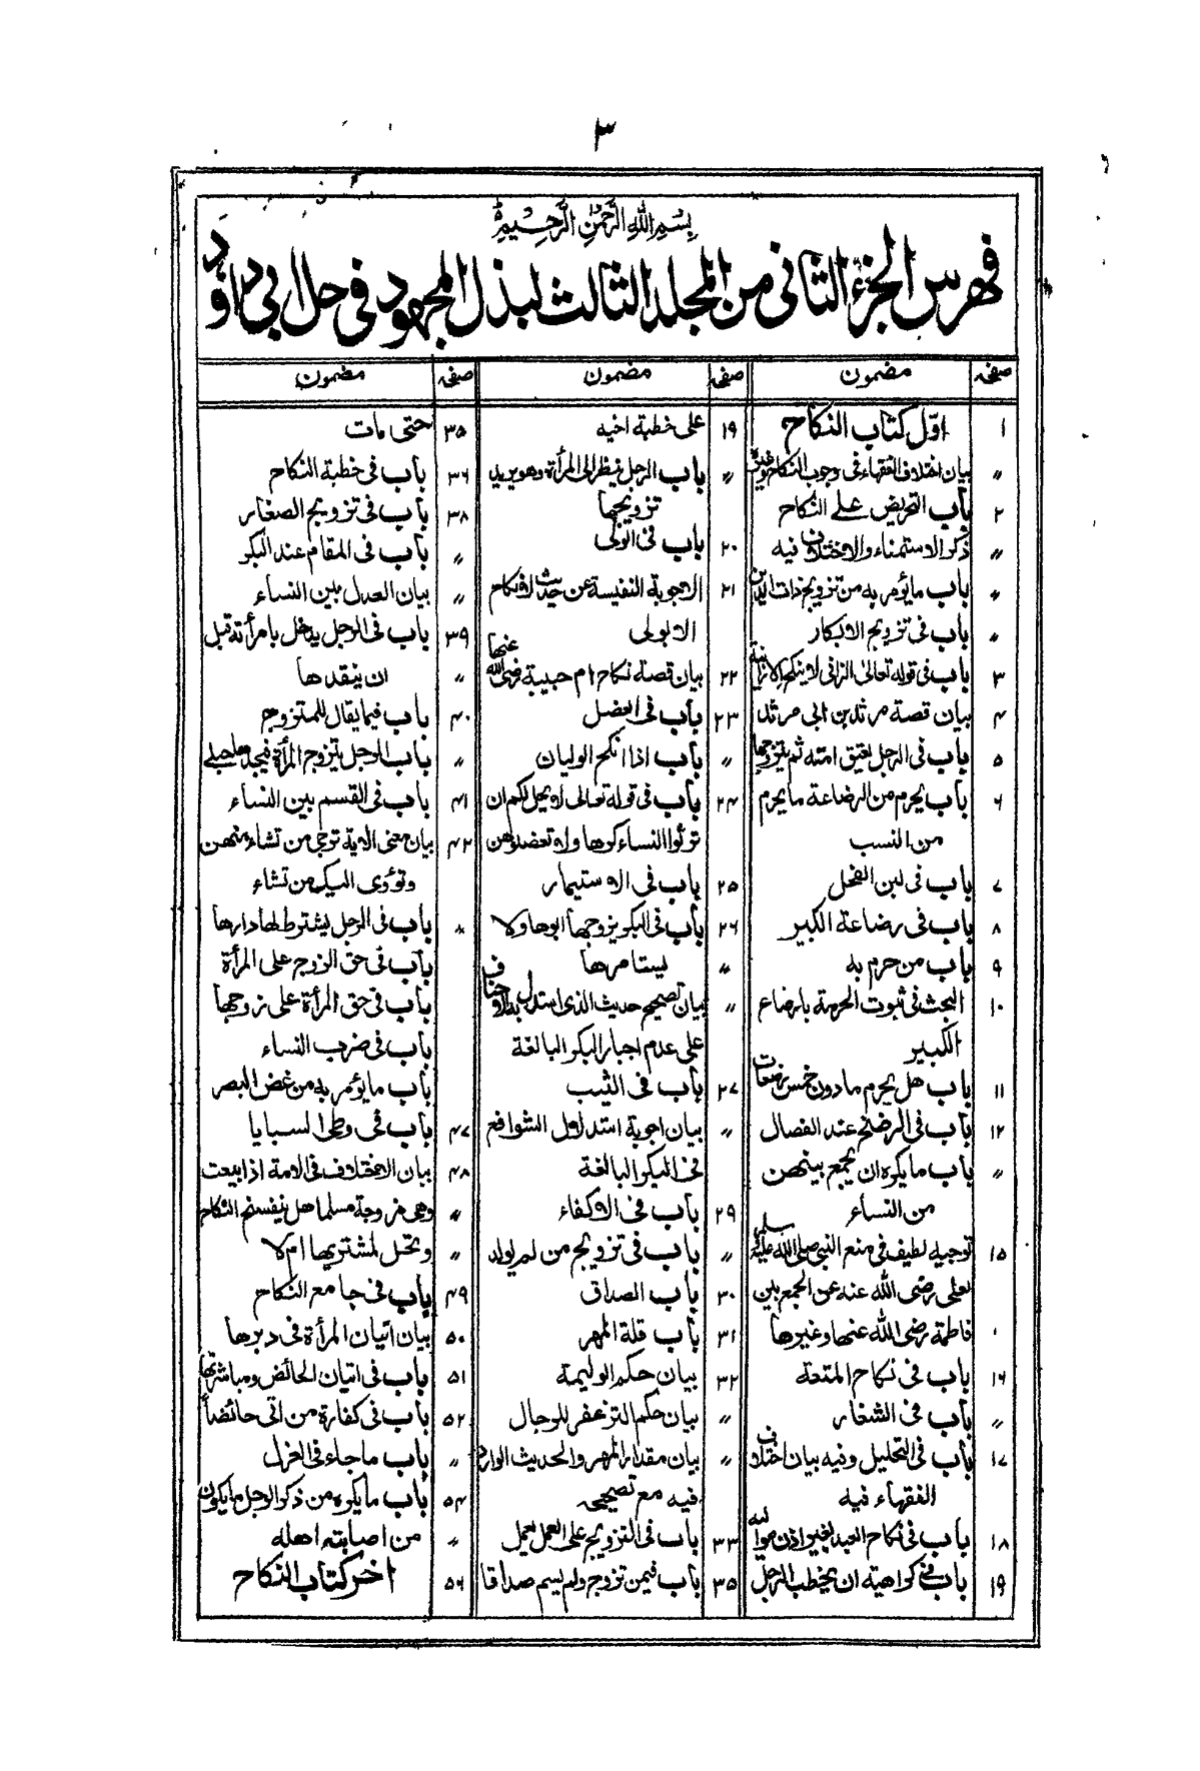 ٣
بِسْمِ اللهِ الرَّحْمٰنِ الرَّحِيْمِ
فهرس الجزء الثانى من المجلد الثالث لبذل المجهود فى حل ابى داؤد
صفحه مضمون
١ اوّل كتاب النكاح
〃 بيان اختلاف الفقهاء فى وجوب النكاح وغيره
٢ باب التحريض على النكاح
〃 ذكر الاستمناء والاختلاف فيه
〃 باب مايؤمر به من تزويج ذات الدين
〃 باب فى تزويج الابكار
٣ باب فى قوله تعالىٰ الزانى لاينكح الا زانية
٤ بيان قصة مرثد بن ابى مرثد
٥ باب فى الرجل يعتق امته ثم يتزوجها
٦ باب يحرم من الرضاعة مايحرم
من النسب
٧ باب فى لبن الفحل
٨ باب فى رضاعة الكبير
٩ باب من حرم به
١٠ البحث فى ثبوت الحرمة بارضاع
الكبير
١١ باب هل يحرم مادون خمس رضعات
١٢ باب فى الرضخ عند الفصال
〃 باب مايكره ان يجمع بينهن
من النساء
١٥ توجيه لطيف فى منع النبى صلى الله عليه وسلم
لعلى رضى الله عنه عن الجمع بين
فاطمة رضى الله عنها وغيرها
١٦ باب فى نكاح المتعة
〃 باب فى الشغار
١٧ باب فى التحليل وفيه بيان اختلاف
الفقهاء فيه
١٨ باب فى نكاح العبد بغير اذن مواليه
١٩ باب فى كراهية ان يخطب الرجل
صفحه مضمون
١٩ على خطبة اخيه
〃 باب الرجل ينظر الى المرأة وهو يريد
تزويجها
٢٠ باب فى الولى
٢١ الاجوبة النفيسة عن حديث لا نكاح
الا بولى
٢٢ بيان قصة نكاح ام حبيبة رضى الله عنها
٢٣ باب فى العضل
〃 باب اذا انكح الوليان
٢٤ باب فى قوله تعالى لا يحل لكم ان
ترثوا النساء كرها ولا تعضلوهن
٢٥ باب فى الاستيمار
٢٦ باب فى البكر يزوجها ابوها ولا
〃 يستامرها
〃 بيان تصحيح حديث الذى استدل به الاحناف
على عدم اجبار البكر البالغة
٢٧ باب فى الثيب
〃 بيان اجوبة استدلال الشوافع
فى البكر البالغة
٢٩ باب فى الاكفاء
〃 باب فى تزويج من لم يولد
٣٠ باب الصداق
٣١ باب قلة المهر
٣٢ بيان حكم الوليمة
〃 بيان حكم التزعفر للرجال
〃 بيان مقدار المهر والحديث الوارد
فيه مع تصحيحه
٣٣ باب فى التزويج على العمل يعمل
٣٥ باب فيمن تزوج ولم يسم صداقا
صفحه مضمون
٣٥ حتى مات
٣٦ باب فى خطبة النكاح
٣٨ باب فى تزويج الصغار
〃 باب فى المقام عند البكر
〃 بيان العدل بين النساء
٣٩ باب فى الرجل يدخل بامرأته قبل
〃 ان ينقدها
٤٠ باب فيما يقال للمتزوج
〃 باب الرجل يتزوج المرأة فيجدها حبلى
٤١ باب فى القسم بين النساء
٤٢ بيان معنى الاية ترجى من تشاء منهن
وتؤوى اليك من تشاء
〃 باب فى الرجل يشترط لها دارها
باب فى حق الزوج على المرأة
باب فى حق المرأة على زوجها
باب فى ضرب النساء
باب مايؤمر به من غض البصر
٤٧ باب فى وطى السبايا
٤٨ بيان الاختلاف فى الامة اذا بيعت
〃 وهى مزوجة مسلما هل ينفسخ النكاح
〃 وتحل لمشتريها ام لا
٤٩ باب فى جامع النكاح
٥٠ بيان اتيان المرأة فى دبرها
٥١ باب فى اتيان الحائض ومباشرتها
٥٢ باب فى كفارة من اتى حائضا
〃 باب ماجاء فى العزل
٥٤ باب مايكره من ذكر الرجل مايكون
〃 من اصابته اهله
٥٦ اخر كتاب النكاح